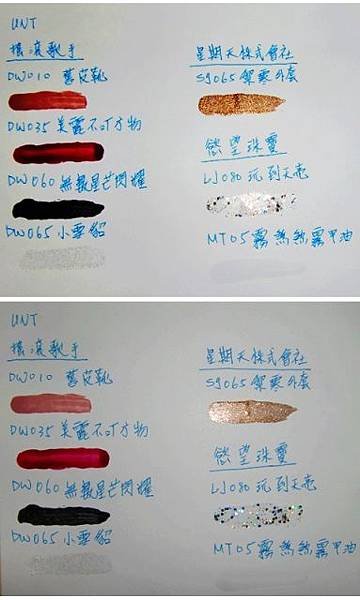 UNT
搖滾歌手
DW010 舊皮靴
DW035 美麗不可方物
DW060 無數星芒閃耀
DW065 小雪貂
星期天株式會社
SG065 禦寒外套
慾望珠寶
LJ080 玩到天亮
MT05 霧熱熱霧甲油
UNT
搖滾歌手
DW010 舊皮靴
DW035 美麗不可方物
DW060 無數星芒閃耀
DW065 小雪貂
星期天株式會社
SG065 禦寒外套
慾望珠寶
LJ080 玩到天亮
MT05 霧熱熱霧甲油